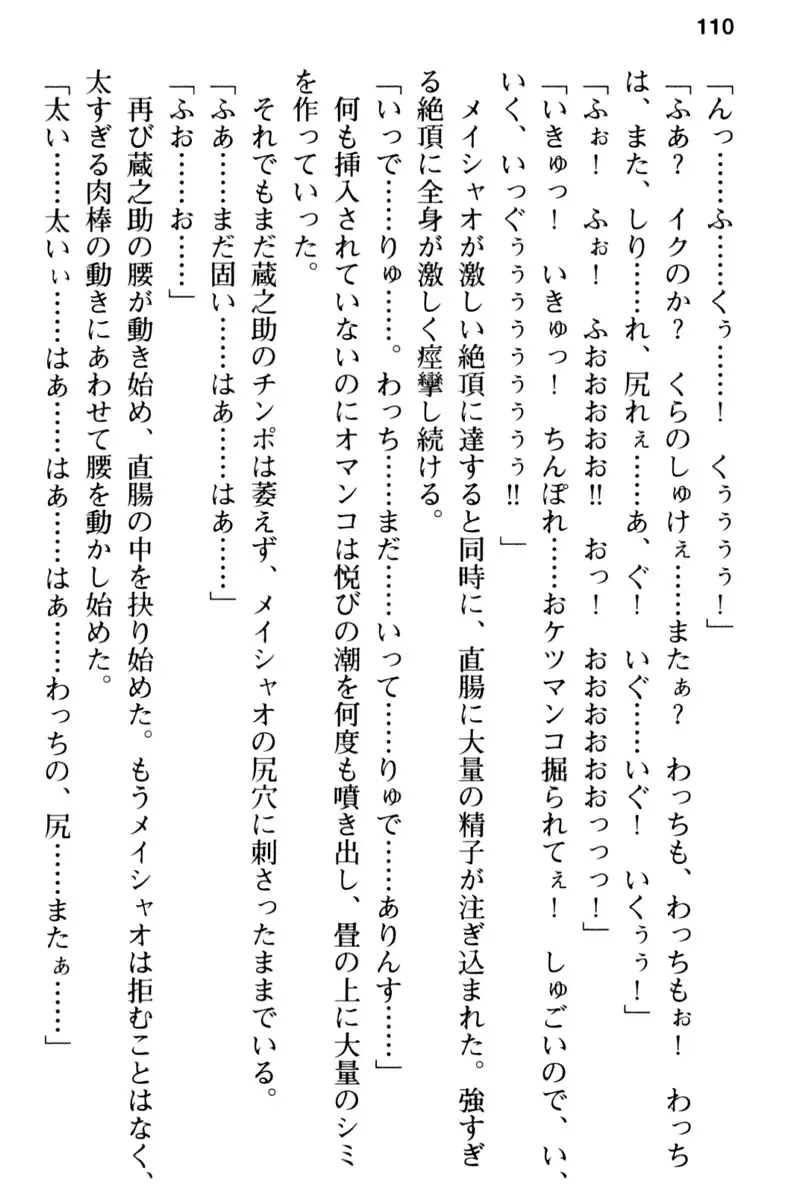 110
「んっ……ふ……くぅ……！　くぅぅぅ！」
「ふあ？　イクのか？　くらのしゅけぇ……またぁ？　わっちも、わっちもぉ！　わっち
は、また、しり……れ、尻れぇ……あ、ぐ！　いぐ……いぐ！　いくぅぅ！」
「ふぉ！　ふぉ！　ふおおおおお!!　おっ！　おおおおおおっっっ！」
「いきゅっ！　いきゅっ！　ちんぽれ……おケツマンコ掘られてぇ！　しゅごいので、い、
いく、いっぐぅぅぅぅぅぅぅぅ!!」
　メイシャオが激しい絶頂に達すると同時に、直腸に大量の精子が注ぎ込まれた。強すぎ
る絶頂に全身が激しく痙攣し続ける。
「いっで……りゅ……。わっち……まだ……いって……りゅで……ありんす……」
　何も挿入されていないのにオマンコは悦びの潮を何度も噴き出し、畳の上に大量のシミ
を作っていった。
　それでもまだ蔵之助のチンポは萎えず、メイシャオの尻穴に刺さったままでいる。
「ふぁ……まだ固い……はあ……はあ……」
「ふお……お……」
　再び蔵之助の腰が動き始め、直腸の中を抉り始めた。もうメイシャオは拒むことはなく、
太すぎる肉棒の動きにあわせて腰を動かし始めた。
「太い……太いぃ……はあ……はあ……はあ……わっちの、尻……またぁ……」